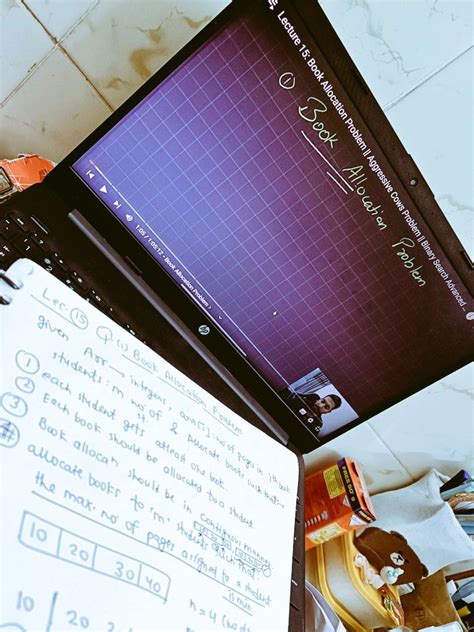 Lecture 15: Book Allocation Problem || Aggressive Cows Problem || Binary Search Advanced
① Book Allocation Problem
1:05 / 1:05:12 • Book Allocation Problem
hp
Lec: 15 Q (1) Book Allocation Problem
given Arr → integers, arr[i]: no. of pages in ith book
students: m no. of & Allocate book such that:-
① each student gets atleast one book
② Each book should be allocated to a student
③ Book allocatn should be in continuous manner
allocate books to 'm' students such that
the max. no. of pages assigned to a student
is min.
10 20 30 40
n = 4 (no. of
10 | 20